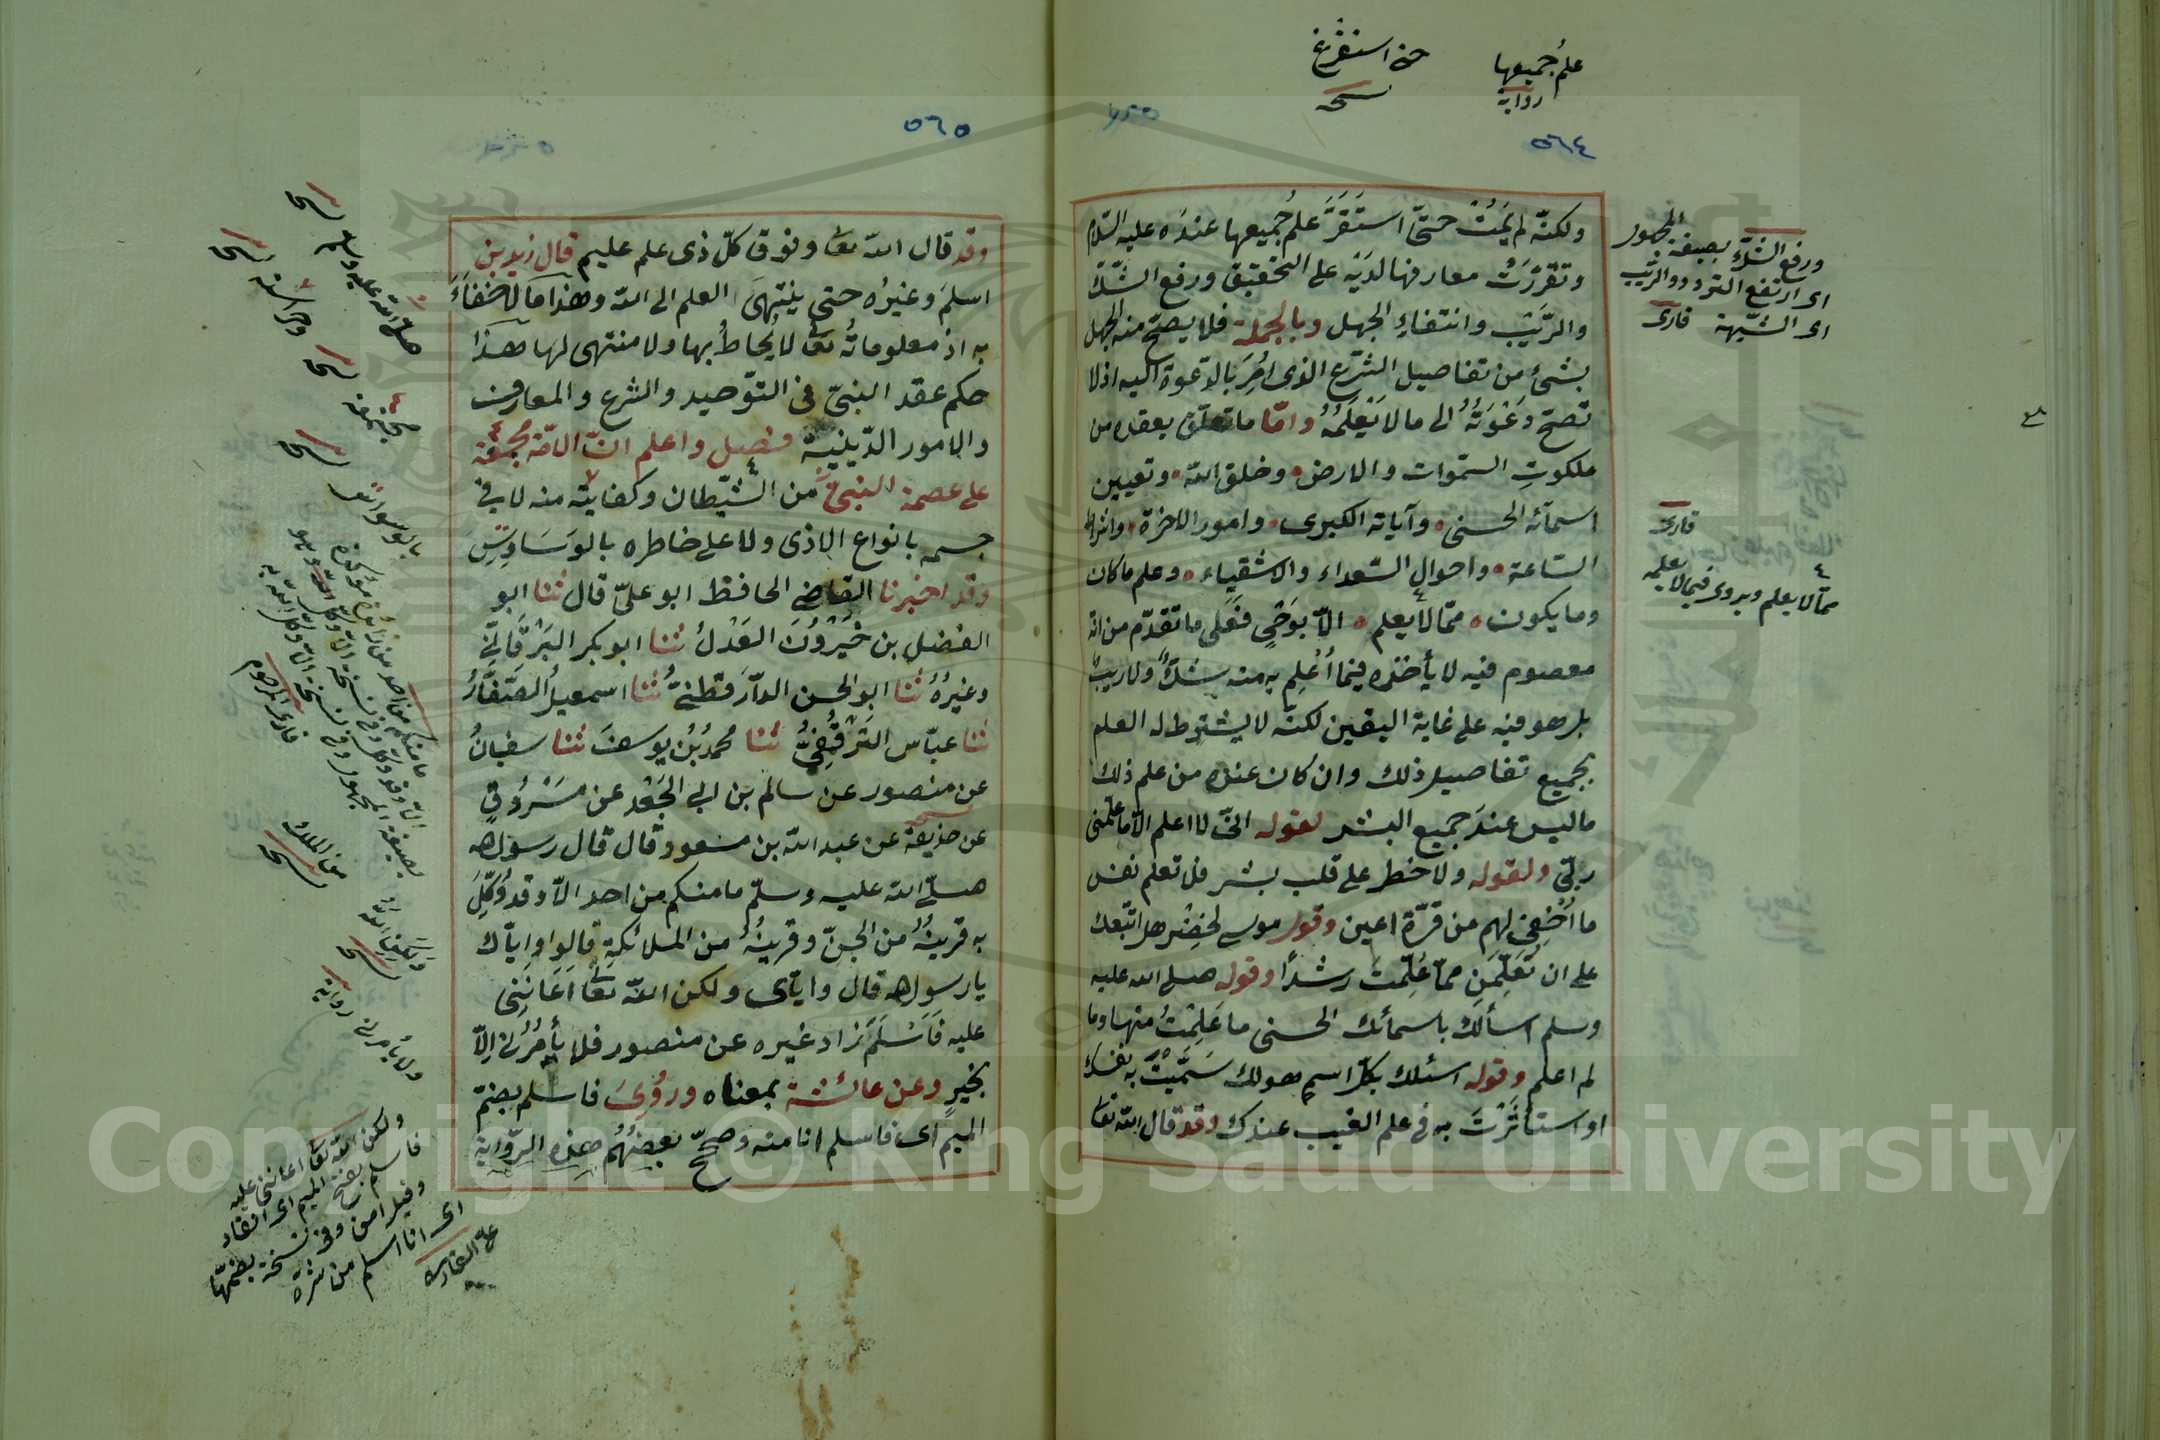 علمُ جميعها
رواية
حتى استفرغ
نسخه
٥٦٤
ولكنّه لم يَمُتْ حتىّ استَقَرَّ علمُ جُميعها عندَه عليه السّلام
وتقرّرَتْ معارفها لدَيَه على التحقيق ورفع الشّكّ
والرَّيْب وانتفاءِ الجهل وبالجملة فلا يصحّ منه الجهل
بشئ من تفاصيل الشّرع الذى اُمِرَ بالدّعوة اليه اذ لا
تصحّ دَعْوَتُهُ الى ما لا يَعْلَمُهُ وامّا ما تعلّق بعقده من
ملكوتِ السّموات والارض وخلق الله وتعيين
اسمآئه الحسنى وآياته الكبرى وامور الاخرة واشراط
السّاعة واحوال السّعداء والاشقياء وعلم ما كان
وما يكون ممّا لا يعلم الاّ بوَحْيٍ فعَلى ما تقدّم من انه
معصوم فيه لا يأخذه فيما اُعْلِم به منه شكّ ولا ريب
بل هو فيه على غاية اليقين لكنّه لا يشترط له العلم
بجميع تفاصيل ذلك وان كان عنده من علم ذلك
ما ليس عندَ جميع البشر لقوله انى لا اعلم الاّ ما علّمنى
ربّى ولقوله ولا خطر على قلب بشر فلا تعلم نفس
ما اُخْفِىَ لهم من قرّة اعين وقول موسى لخضر هل اتّبعك
على ان تُعَلِّمَنِ ممّا عُلِّمتَ رشدًا وقوله صلى الله عليه
وسلم اسألك باسمائك الحسنى ما عَلِمْتُ منها وما
لم اعلم وقوله اسئلك بكلّ اسمٍ هو لك سَمَّيْتَ به نفسك
او استأثَرْتَ به فى علم الغيب عندك وقد قال الله تعا
ورفع الشّكّ بصيغة المجهول
اى ارتفع التردد والرّيب
اى الشّبهة قارى
قارى
ممّا لا يعلم ويروى فيما لا يعلمه
٥٦٥
وقد قال الله تعا وفوق كلّ ذى علم عليم قال زيد بن
اسلمَ وغيرُه حتى ينتهىَ العلم الى الله وهذا ما لا خفاءَ
به اذ معلوماتُه تعا لا يُحاطُ بها ولا منتهى لها هذا
حكم عقد النبىّ فى التوّحيد والشرع والمعارف
والامور الدّينية فصل واعلم انّ الامّة مجمعة
على عصمة النبىّ من الشّيطان وكفايته منه لا فى
جسمه بانواع الاذى ولا على خاطره بالوَسَاوِسِ
وقد اخبرنا القاضى الحافظ ابو علىّ قال ثنا ابو
الفضل بن خَيْرُونَ العَدْلُ ثنا ابو بكر البَرْقَانِىّ
وغيرُهُ ثنا ابو الحسن الدّارَقطنىّ ثنا اسمعيلُ الصّفّارُ
ثنا عبّاس التَرْقُفِىُّ ثنا محمدُ بْنُ يوسفَ ثنا سفيانُ
عن منصور عن سالم بن ابى الجَعْد عن مَسْرُوقٍ
عن حذيفة عن عبد الله بن مسعود قال قال رسول الله
صلّى الله عليه وسلّم ما منكم من احد الاّ وقد وُكِّلَ
به قرينُهُ من الجنّ وقرينُهُ من الملائكةِ قالوا وايّاك
يا رسول الله قال وايّاى ولكن الله تعا اَعَانَنِى
عليه فَاَسْلَمَ زاد غيره عن منصور فلا يأمُرُنى اِلاّ
بخيرٍ وعن عائشة بمعناه ورُوِىَ فاسلم بضمّ
الميم اى فاسلم انا منه وصحّح بعضُهُم هذه الرّواية
صلّى الله عليه وسلم
نسخ
نسخ
مجتمعة
نسخ
بالوسواس
نسخ
ما منكم من احد
قارى المرحوم
من الملك
نسخ
نسخ
ولا يأمرنى رواية
ولكن الله تعا اعاننى عليه
فاسلم بفتح الميم اى انقاد
وقيل امن وفى نسخة بضمّها
اى انا اسلم من شرّه
على القارى